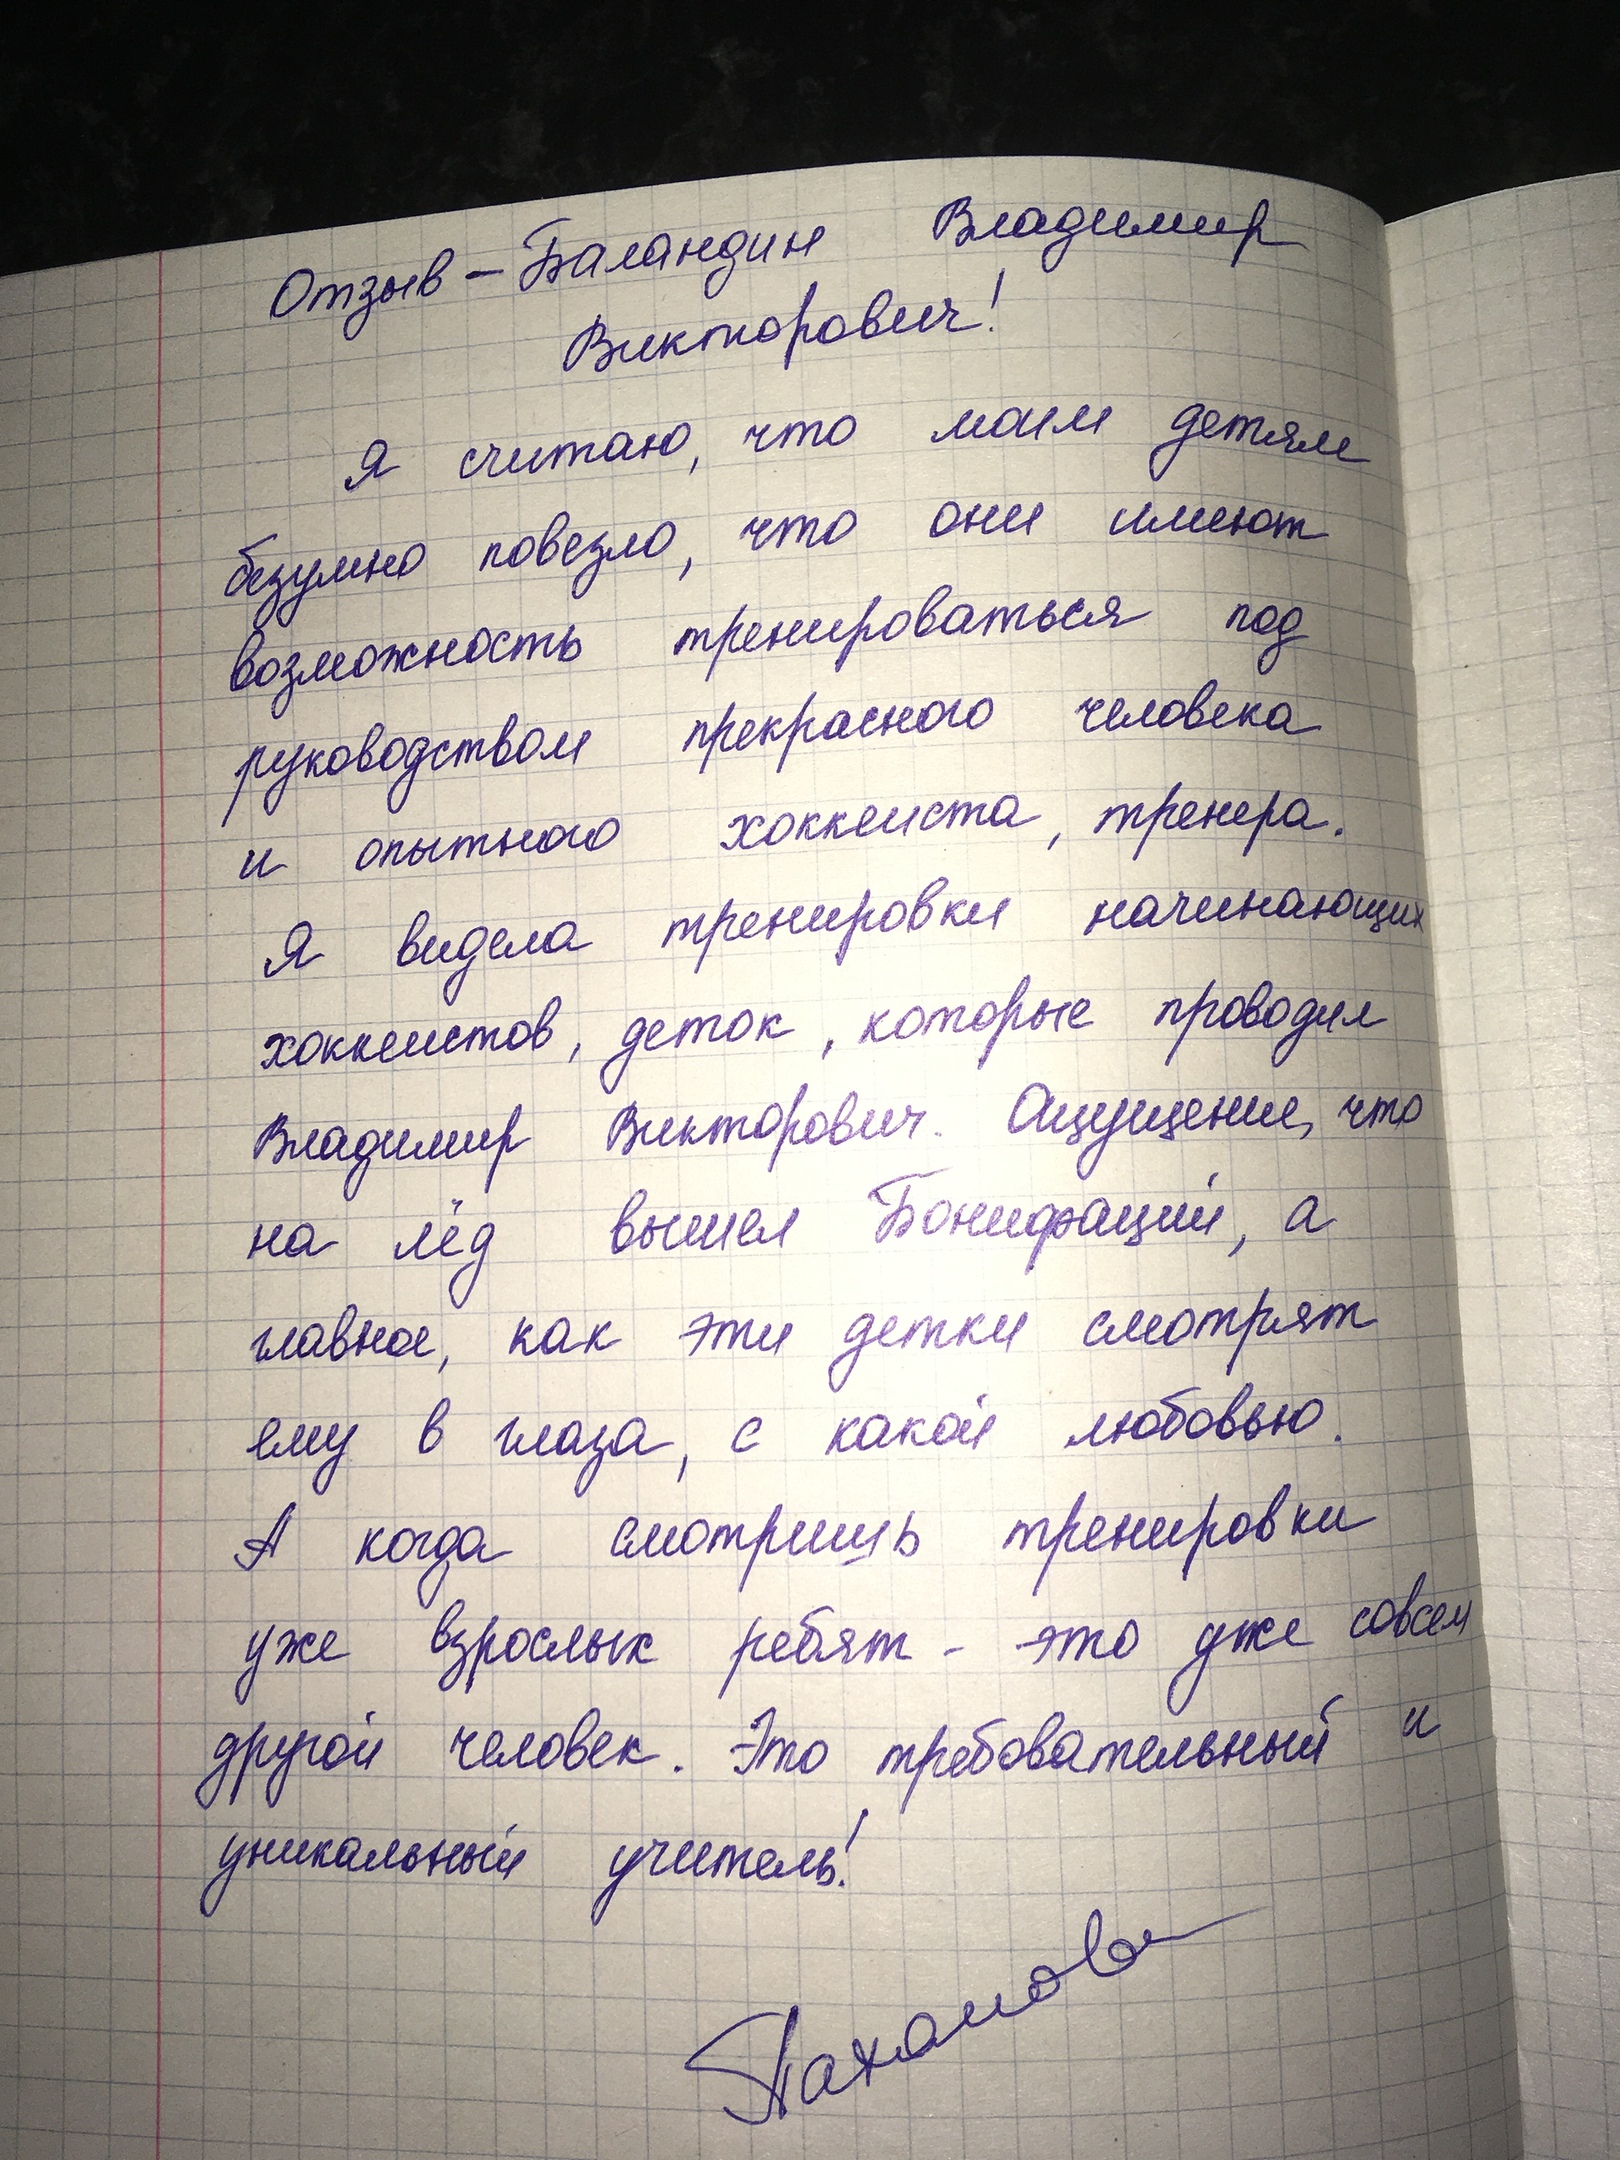 Отзыв – Баландин Владимир
Викторович!
Я считаю, что моим детям
безумно повезло, что они имеют
возможность тренироваться под
руководством прекрасного человека
и опытного хоккеиста, тренера.
Я видела тренировки начинающих
хоккеистов, деток, которые проводил
Владимир Викторович. Ощущение, что
на лёд вышел Бонифаций, а
главное, как эти детки смотрят
ему в глаза, с какой любовью.
А когда смотришь тренировки
уже взрослых ребят - это уже совсем
другой человек. Это требовательный и
уникальный учитель!